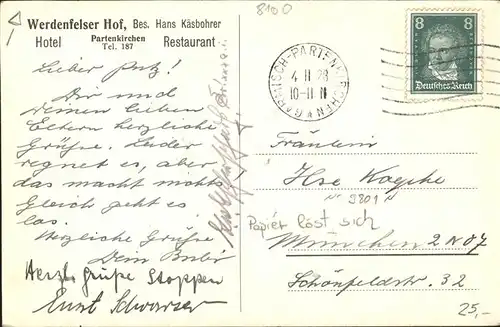 Werdenfelser Hof, Bes. Hans Käsbohrer
Partenkirchen
Hotel Restaurant
Tel. 187
8100
Lieber Putz!
Dir und
Deinen lieben
Eltern herzliche
Grüße. Leider
regnet es, aber
das macht nichts!
Gleich geht es
los.
Herzliche Grüße
Dein
Herzl. Grüße Stoppen
Ernst Schwarzer
GARMISCH-PARTENKIRCHEN
4 II 28
10-11 N
8 8
Deutsches Reich
Fräulein
Ilse Koepke
9801
Papier löst sich
München 2 NO7
Schönfeldstr. 32
25,-